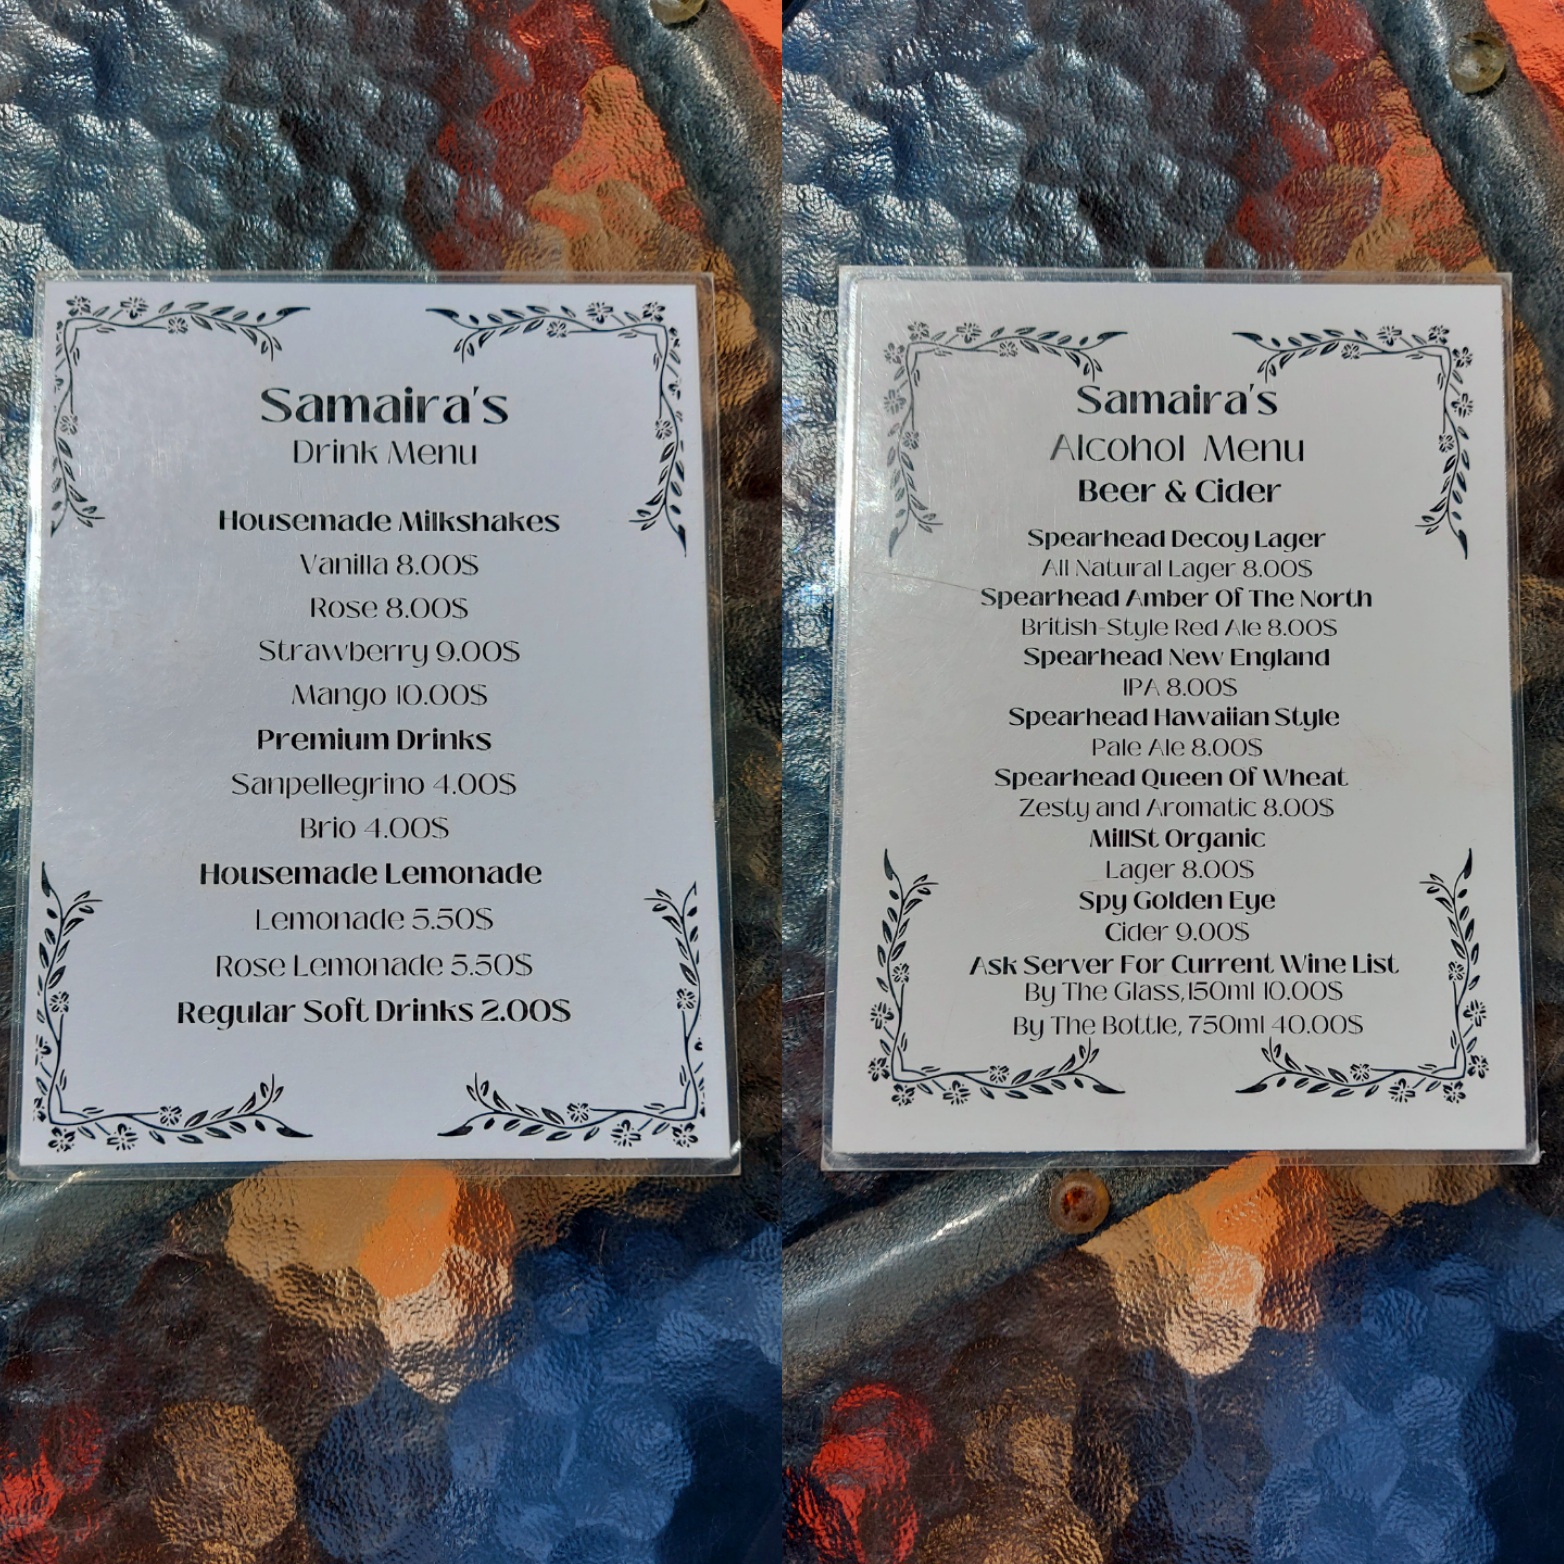 Samaira's
Drink Menu
Housemade Milkshakes
Vanilla 8.00$
Rose 8.00$
Strawberry 9.00$
Mango 10.00$
Premium Drinks
Sanpellegrino 4.00$
Brio 4.00$
Housemade Lemonade
Lemonade 5.50$
Rose Lemonade 5.50$
Regular Soft Drinks 2.00$
Samaira's
Alcohol Menu
Beer & Cider
Spearhead Decoy Lager
All Natural Lager 8.00$
Spearhead Amber Of The North
British-Style Red Ale 8.00$
Spearhead New England
IPA 8.00$
Spearhead Hawaiian Style
Pale Ale 8.00$
Spearhead Queen Of Wheat
Zesty and Aromatic 8.00$
MillSt Organic
Lager 8.00$
Spy Golden Eye
Cider 9.00$
Ask Server For Current Wine List
By The Glass,150ml 10.00$
By The Bottle, 750ml 40.00$